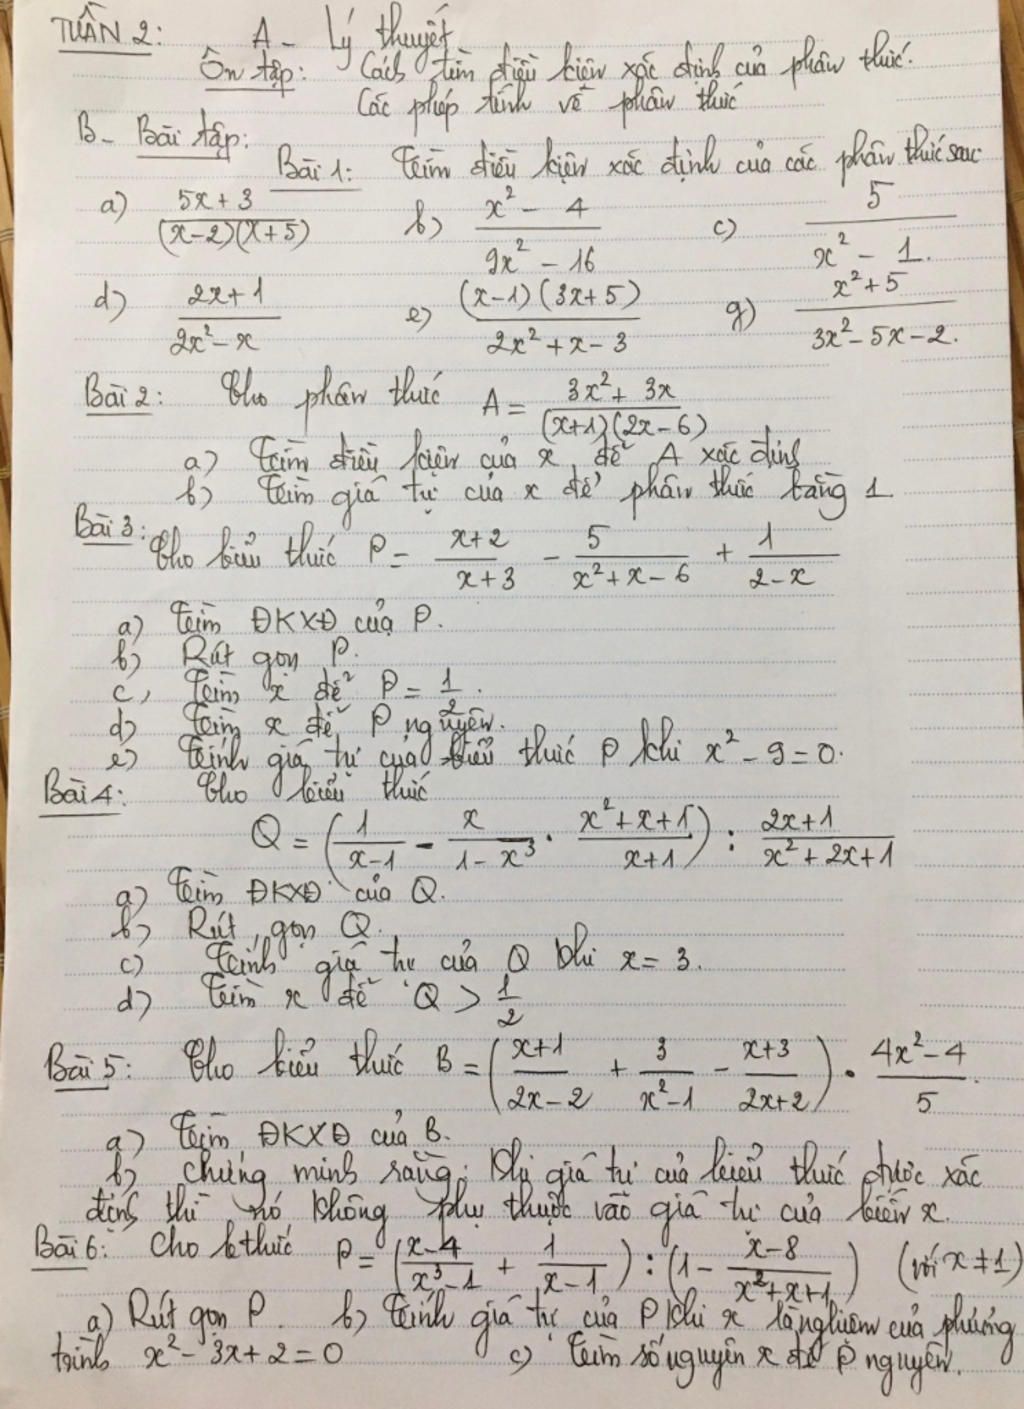 TUẦN 2: A - Lý thuyết
Ôn tập: Cách tìm điều kiện xác định của phân thức.
Các phép tính về phân thức
B - Bài tập:
Bài 1: Tìm điều kiện xác định của các phân thức sau
a) (5x + 3)/((x-2)(x+5)) b) (x² - 4)/(9x² - 16) c) 5/(x² - 1.)
d) (2x+1)/(2x² - x) e) ((x-1)(3x+5))/(2x² + x - 3) g) (x² + 5)/(3x² - 5x - 2.)
Bài 2: Cho phân thức A = (3x² + 3x)/((x+1)(2x-6))
a) Tìm điều kiện của x để A xác định
b) Tìm giá trị của x để phân thức bằng 1
Bài 3: Cho biểu thức P = (x+2)/(x+3) - 5/(x² + x - 6) + 1/(2-x)
a) Tìm ĐKXĐ của P.
b) Rút gọn P.
c, Tìm x để P = 1/2.
d) Tìm x để P nguyên.
e) Tính giá trị của biểu thức P khi x² - 9 = 0.
Bài 4: Cho biểu thức
Q = (1/(x-1) - x/(1-x³) . (x² + x + 1)/(x+1)) : (2x+1)/(x² + 2x + 1)
a) Tìm ĐKXĐ của Q.
b) Rút gọn Q.
c) Tính giá trị của Q khi x = 3.
d) Tìm x để Q > 1/2
Bài 5: Cho biểu thức B = ((x+1)/(2x-2) + 3/(x²-1) - (x+3)/(2x+2)) . (4x² - 4)/5.
a) Tìm ĐKXĐ của B.
b) Chứng minh rằng: Khi giá trị của biểu thức được xác
định thì nó không phụ thuộc vào giá trị của biến x.
Bài 6: Cho b thức P = ((x-4)/(x³-1) + 1/(x-1)) : (1 - (x-8)/(x²+x+1)) (với x ≠ 1)
a) Rút gọn P. b) Tính giá trị của P khi x là nghiệm của phương
trình x² - 3x + 2 = 0 c) Tìm số nguyên x để P nguyên.